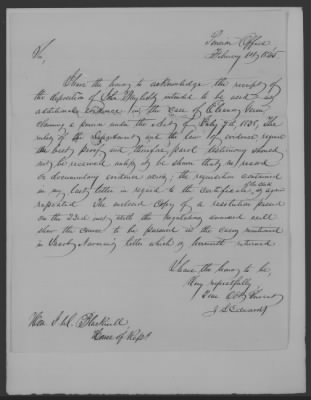 Pension Office
February 1845
Sir,
I have the honor to acknowledge the receipt of
the deposition of John intended to be used as
additional evidence in the case of Eleanor
claiming a pension under the act of July 7th, 1838. The
rules of the Department and the law of evidence require
the best proof, and therefore parol testimony should
not be received, unless it be shown that no record
or documentary evidence exists; the requisition contained
in my last letter in regard to the certificate of the clerk is again
repeated. The enclosed copy of a resolution passed
on the 23rd with the regulations annexed will
show the course to be pursued in the cases mentioned
in letter which is herewith returned
I have the honor to be,
Very respectfully
Your Obt Servant
J L Edwards
Hon J. A. Blackwell
House of Reps